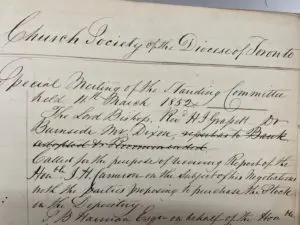 Church Society of the Diocese of Toronto
Special Meeting of the Standing Committee
held 11th March 1852
The Lord Bishop, Revd H J Grasett Dr
Burnside Mr Dixon, reported to Bank
adopted & Recommended
Called for the purpose of receiving Report of the
Honble J H Cameron on the Subject of his Negotiations
with the parties proposing to purchase the Stock
in the Depository
J B Harman Esqr on behalf of the Honble